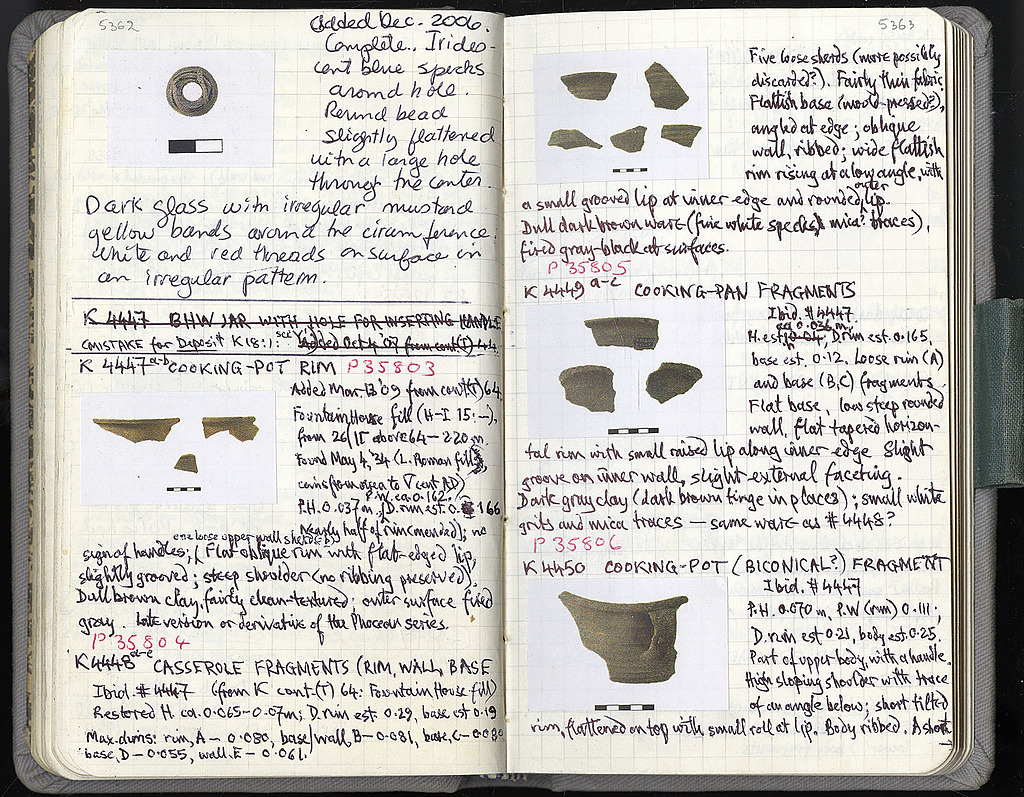 5362
Added Dec. 2006.
Complete. Irides-
cent blue specks
around hole.
Round bead
slightly flattened
with a large hole
through the center.
Dark glass with irregular mustard
yellow bands around the circumference.
White and red threads on surface in
an irregular pattern.
K 4447 BHW JAR WITH HOLE FOR INSERTING HANDLE
(MISTAKE for Deposit K 18:1: Added Oct 4 '07 from cont. (T)
K 4447 a-b COOKING-POT RIM P 35803
Added Mar. 13 '09 from cont. (T) 64,
Fountain House fill (H-I 15:-),
from 26/ΙΓ above 64 – 2.20 m.
Found May 4, '34 (L. Roman fill,
coins from to
P.W. ca. 0.162.
P.H. 0.037 m, D. rim est. 0.166
Nearly half of rim (mended); no
one loose upper wall sherd (b)
sign of handles; Flat oblique rim with flat-edged lip,
slightly grooved; steep shoulder (no ribbing preserved).
Dull brown clay, fairly clean-textured; outer surface fired
gray. Late version or derivative of the Phocean series.
P 35804
K 4448 a-e CASSEROLE FRAGMENTS (RIM, WALL, BASE
Ibid. # 4447 (from K cont. (T) 64: Fountain House fill)
Restored H. ca. 0.065-0.07m; D. rim est. 0.29, base est 0.19
Max. dims: rim, A – 0.080, base/wall, B – 0.081, base, C – 0.080
base, D – 0.055, wall, E – 0.061.
5363
Five loose sherds (more possibly
discarded?). Fairly thin fabric.
Flattish base (mould-pressed?),
angled at edge; oblique
wall, ribbed; wide flattish
rim rising at a low angle, with
a small grooved lip at inner edge and rounded outer lip.
Dull dark brown ware (fine white specks, mica? traces),
fired gray-black at surfaces.
P 35805
K 4449 a-c COOKING-PAN FRAGMENTS
Ibid. # 4447
ca 0.036 m,
H. est. 0.04, D. rim est. 0.165,
base est. 0.12. Loose rim (A)
and base (B, C) fragments.
Flat base, low steep rounded
wall, flat tapered horizon-
tal rim with small raised lip along inner edge Slight
groove on inner wall, slight external faceting.
Dark gray clay (dark brown tinge in places); small white
grits and mica traces – same ware as # 4448?
P 35806
K 4450 COOKING-POT (BICONICAL?) FRAGMENT
Ibid. # 4447
P.H. 0.070 m, P.W (rim) 0.111;
D. rim est 0.21, body est. 0.25.
Part of upper body, with a handle.
High sloping shoulder with trace
of an angle below; short tilted
rim, flattened on top with small roll at lip. Body ribbed. A short
→